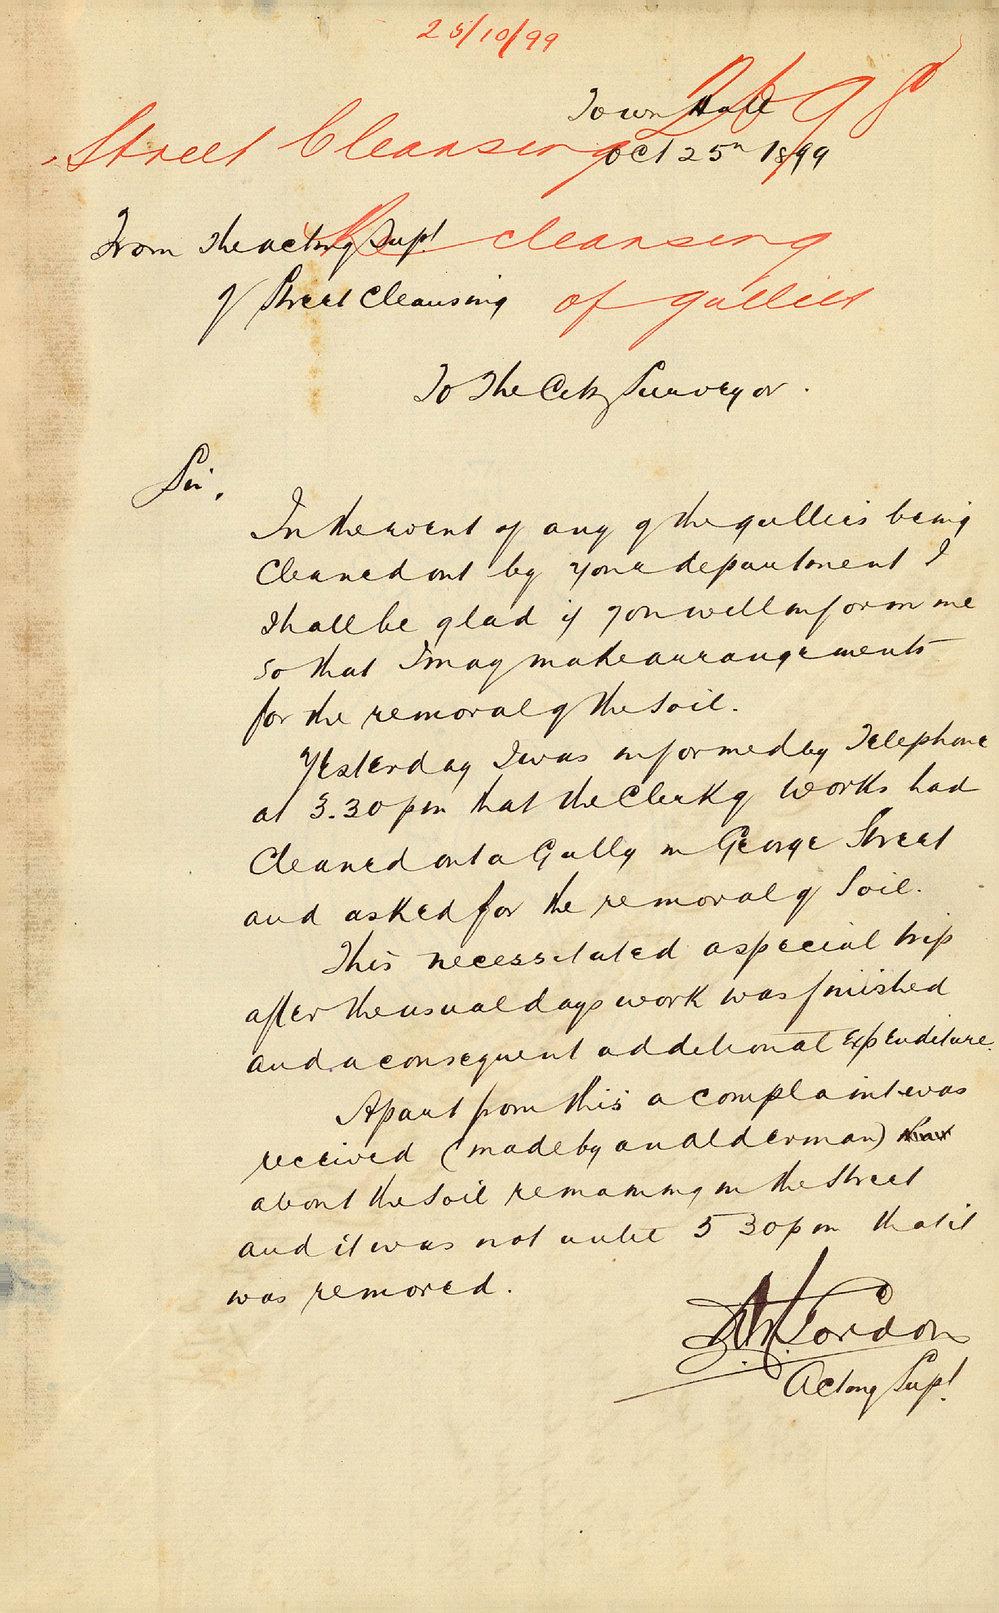 25/10/99
2690
Town Hall
Street Cleansing
Oct 25th 1899
From the acting Supt
Re cleansing
of Street Cleansing
of gullies
To The City Surveyor.
Sir,
In the event of any of the gullies being
Cleaned out by your department I
Shall be glad if you will inform me
so that I may make arrangements
for the removal of the soil.
Yesterday I was informed by Telephone
at 3.30 pm that the Clerk of Works had
Cleaned out a Gully in George Street
and asked for the removal of Soil.
This necessitated a special trip
after the usual days work was finished
and a consequent additional Expenditure.
Apart from this a complaint was
received (made by an alderman)
about the soil remaining in the Street
and it was not until 5 30 pm that it
was removed.
Gordon
Acting Supt.